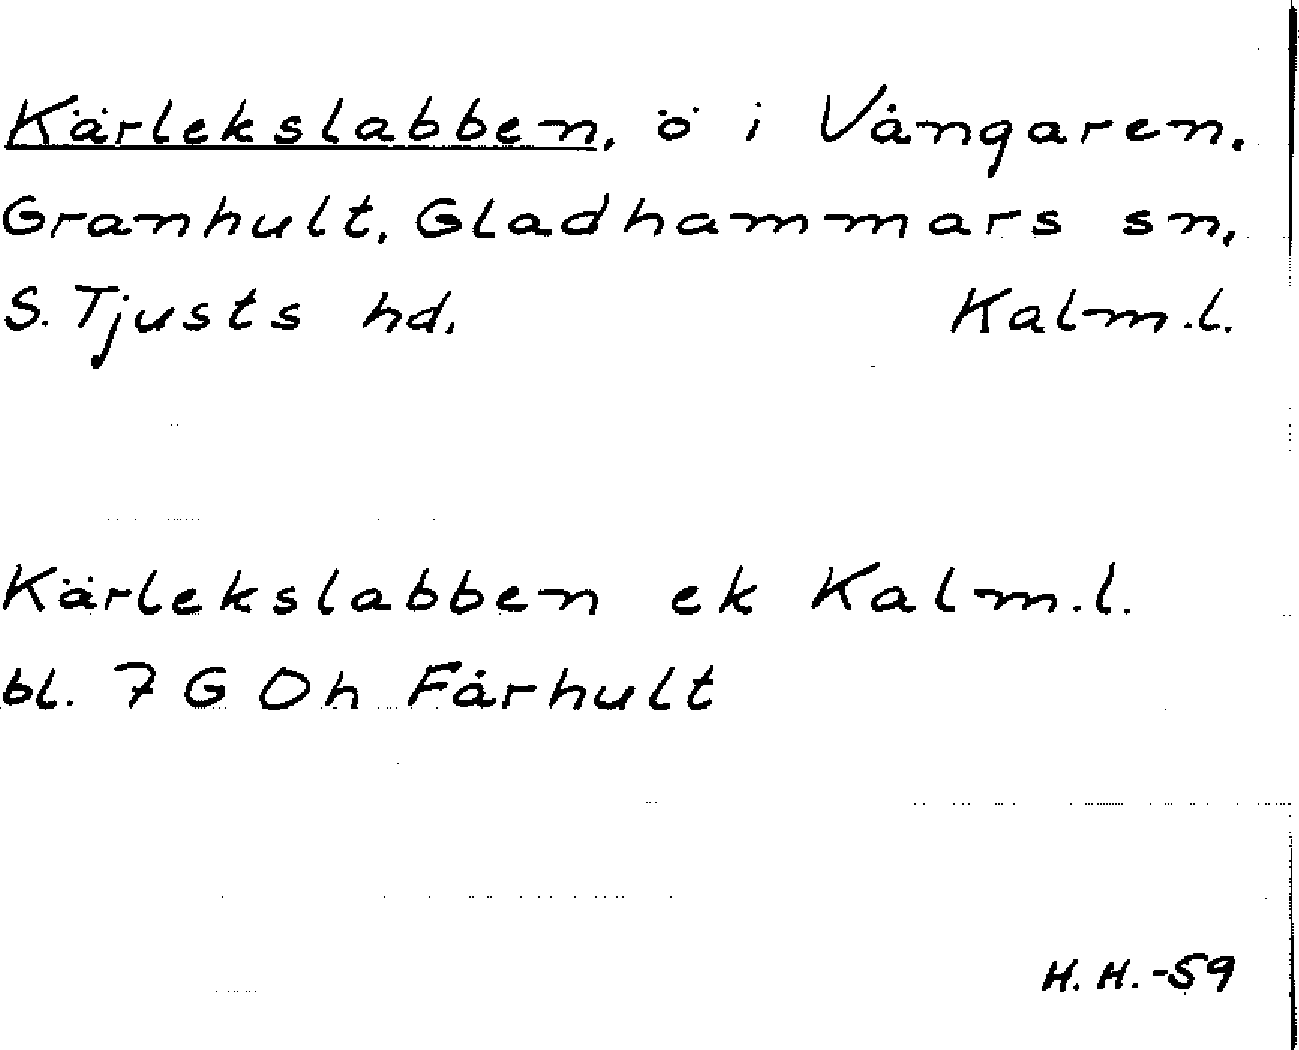 Kärlekslabben, ö i Vångaren.
Granhult, Gladhammars sn,
S. Tjusts hd. Kalm.l.
Kärlekslabben ek Kalm.l.
bl. 7 G 0h Fårhult
H. H. -59